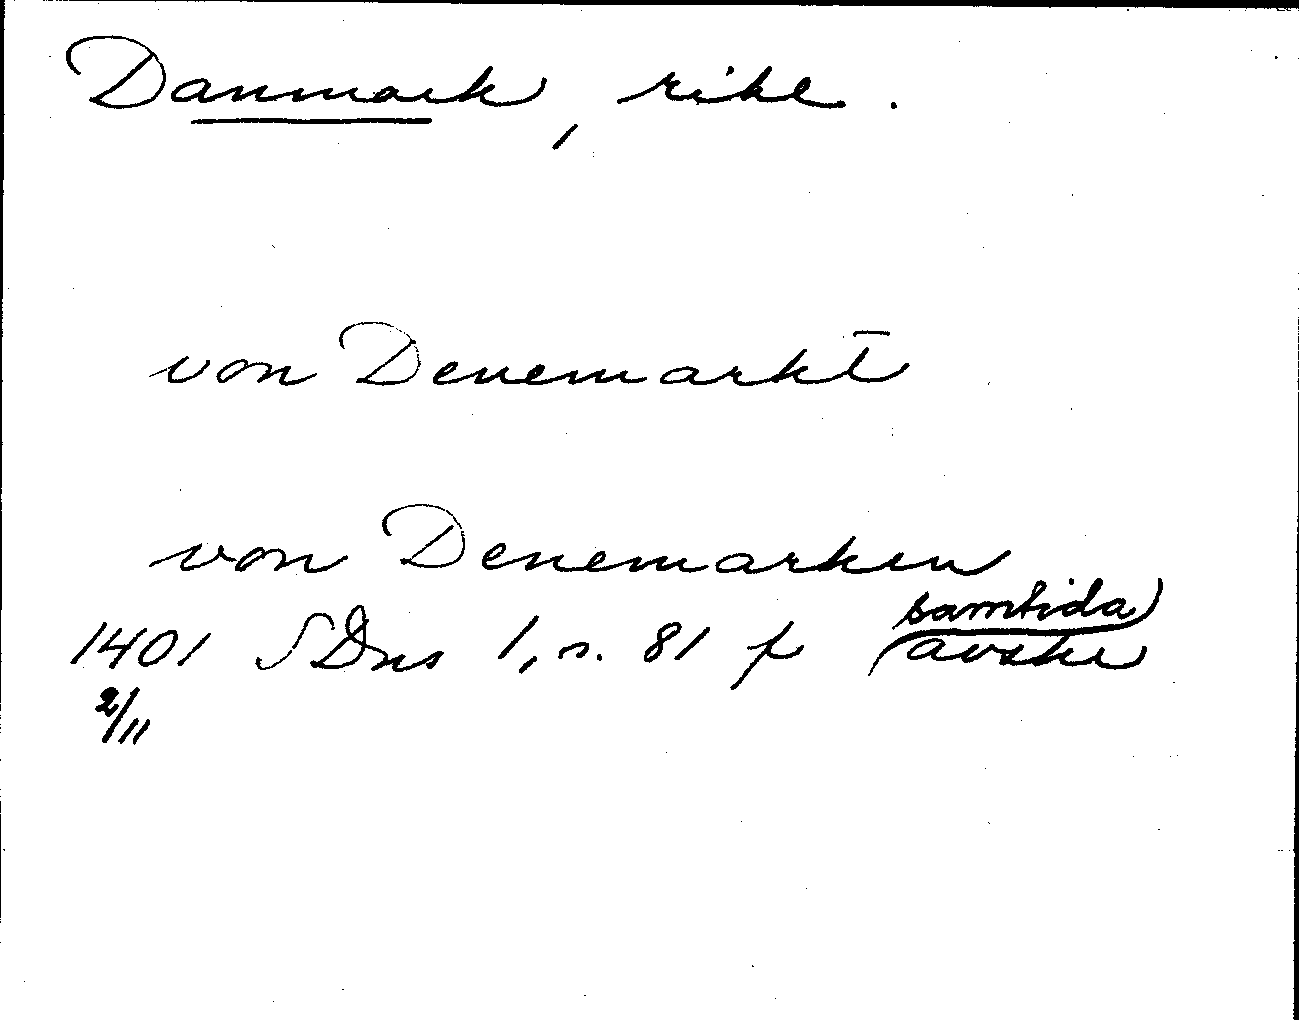 Danmark, rike.
von Denemarkt̄
von Denemarken
1401 SDns 1, s. 81 f (samtida avskr)
2/11